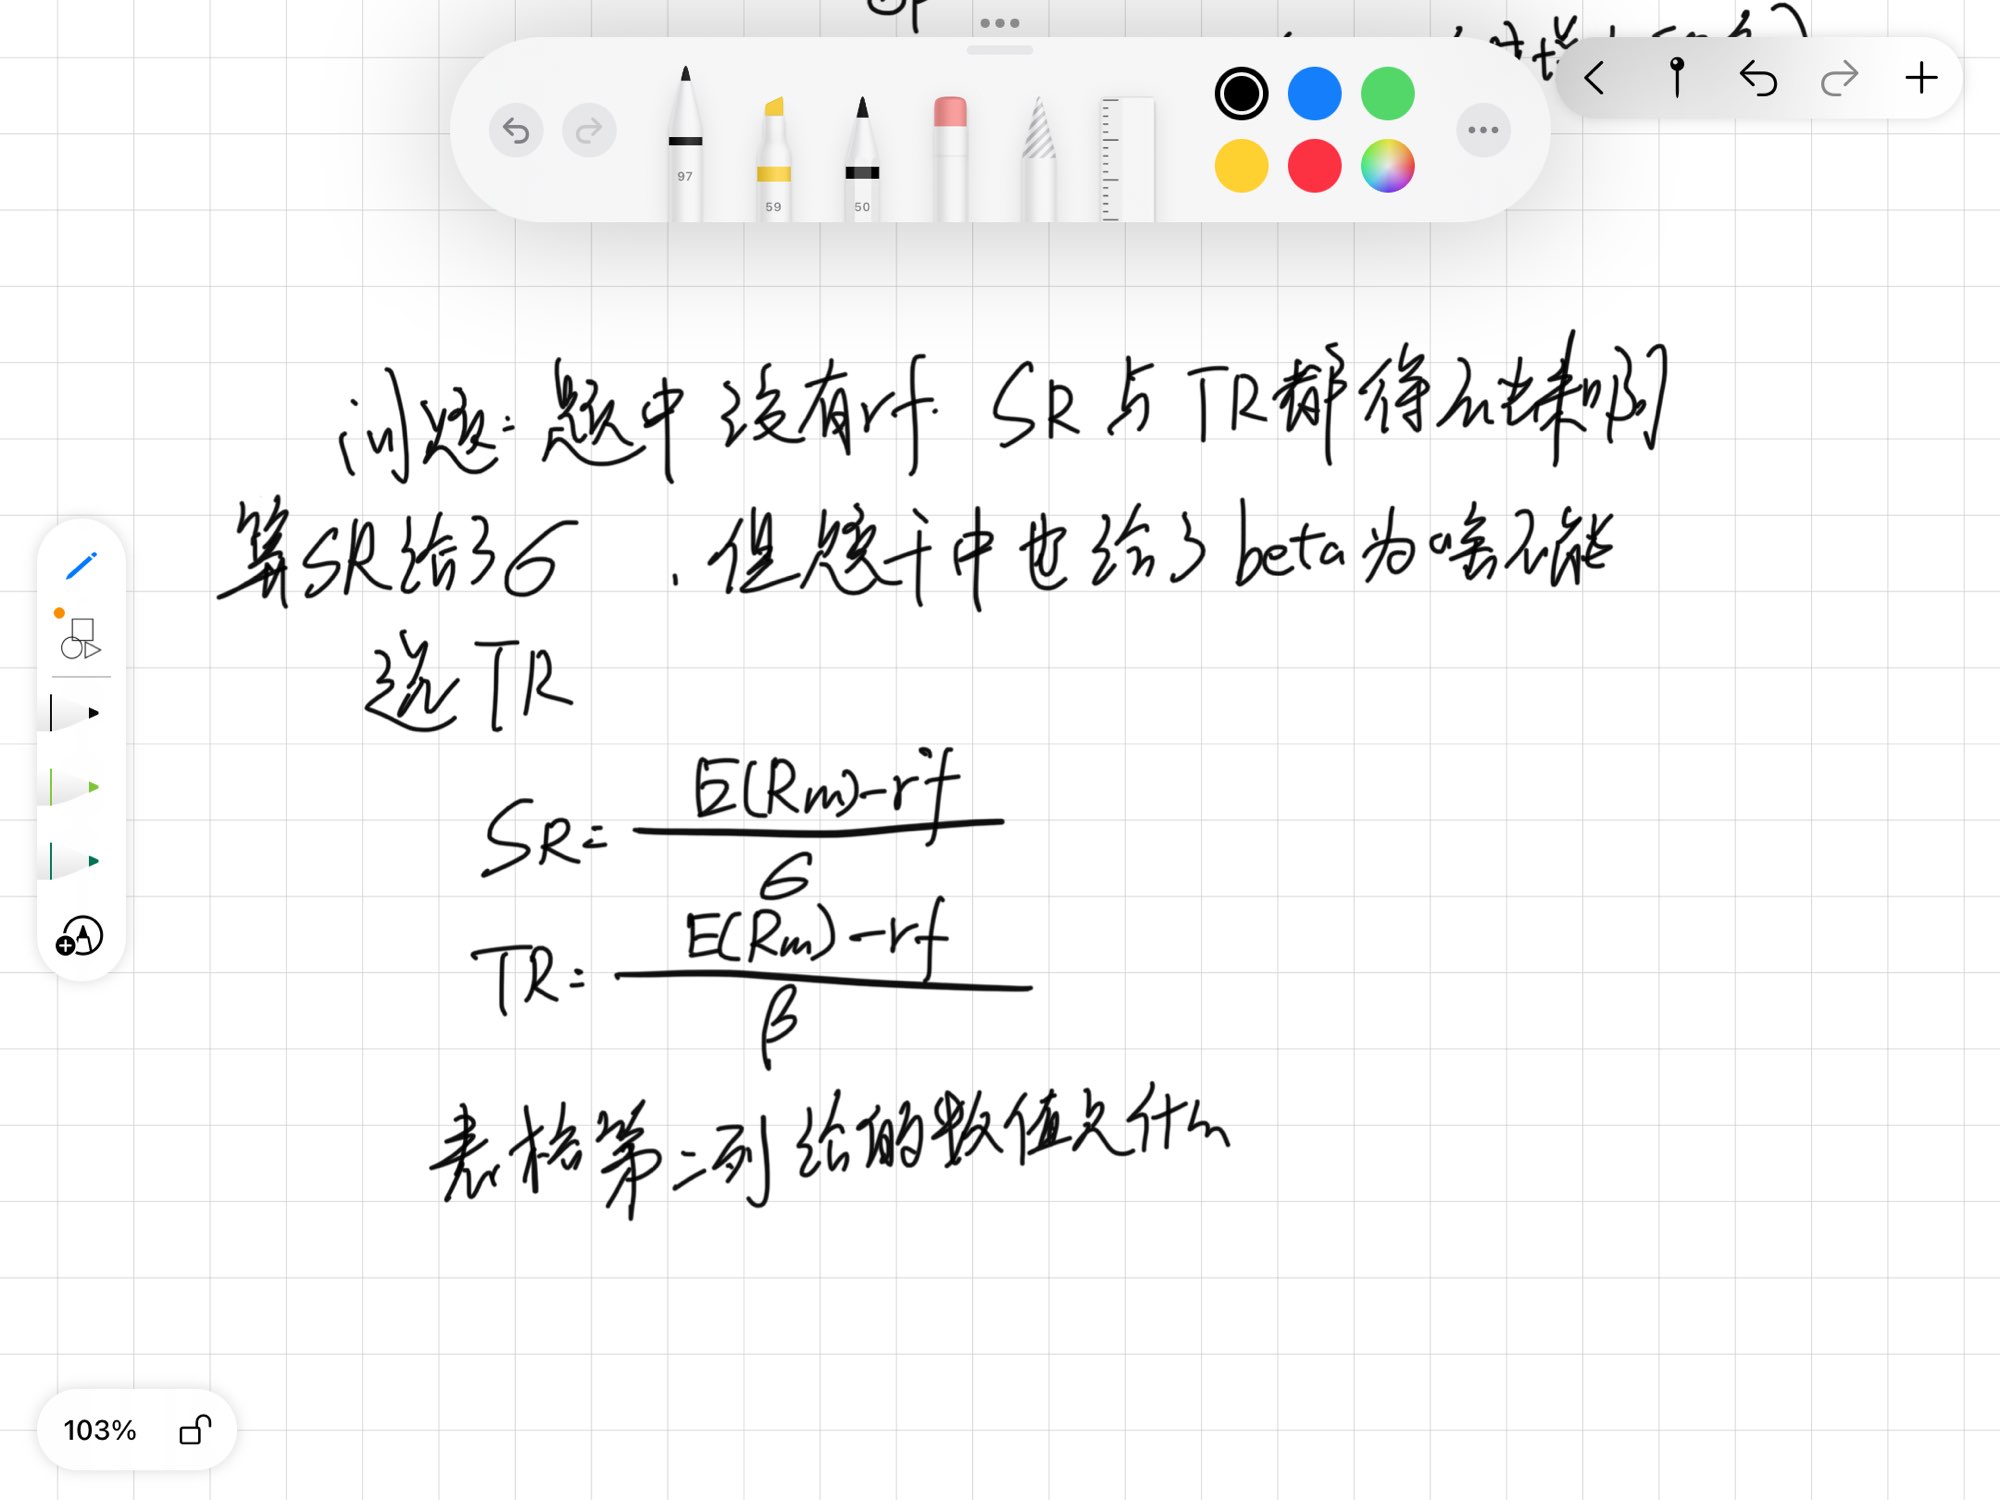 97
59
50
问题:题中没有rf. SR与TR都得不出来啊
算SR给了σ,但题干中也给了beta为啥不能
选TR
SR= E(Rm)-rf / σ
TR= E(Rm)-rf / β
表格第二列给的数值是什么
103%